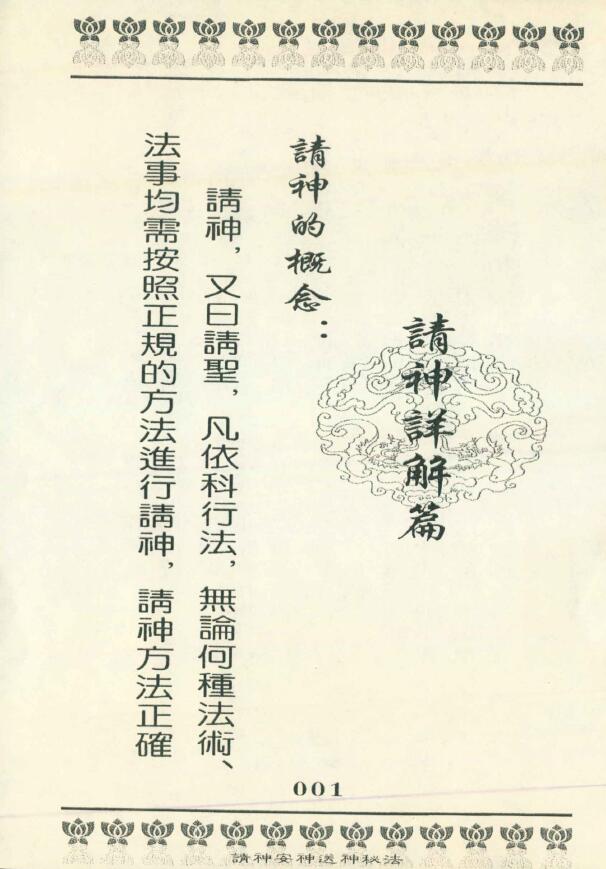 請神詳解篇
請神的概念：
請神，又曰請聖，凡依科行法，無論何種法術、
法事均需按照正規的方法進行請神，請神方法正確
001
請神安神送神秘法